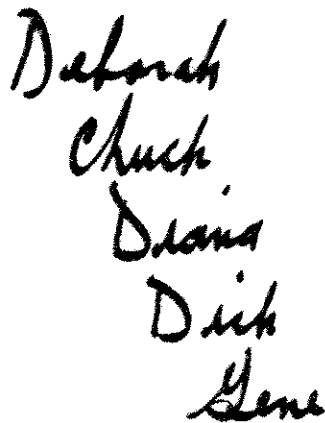 Deborah
Chuck
Diana
Dick
Gene